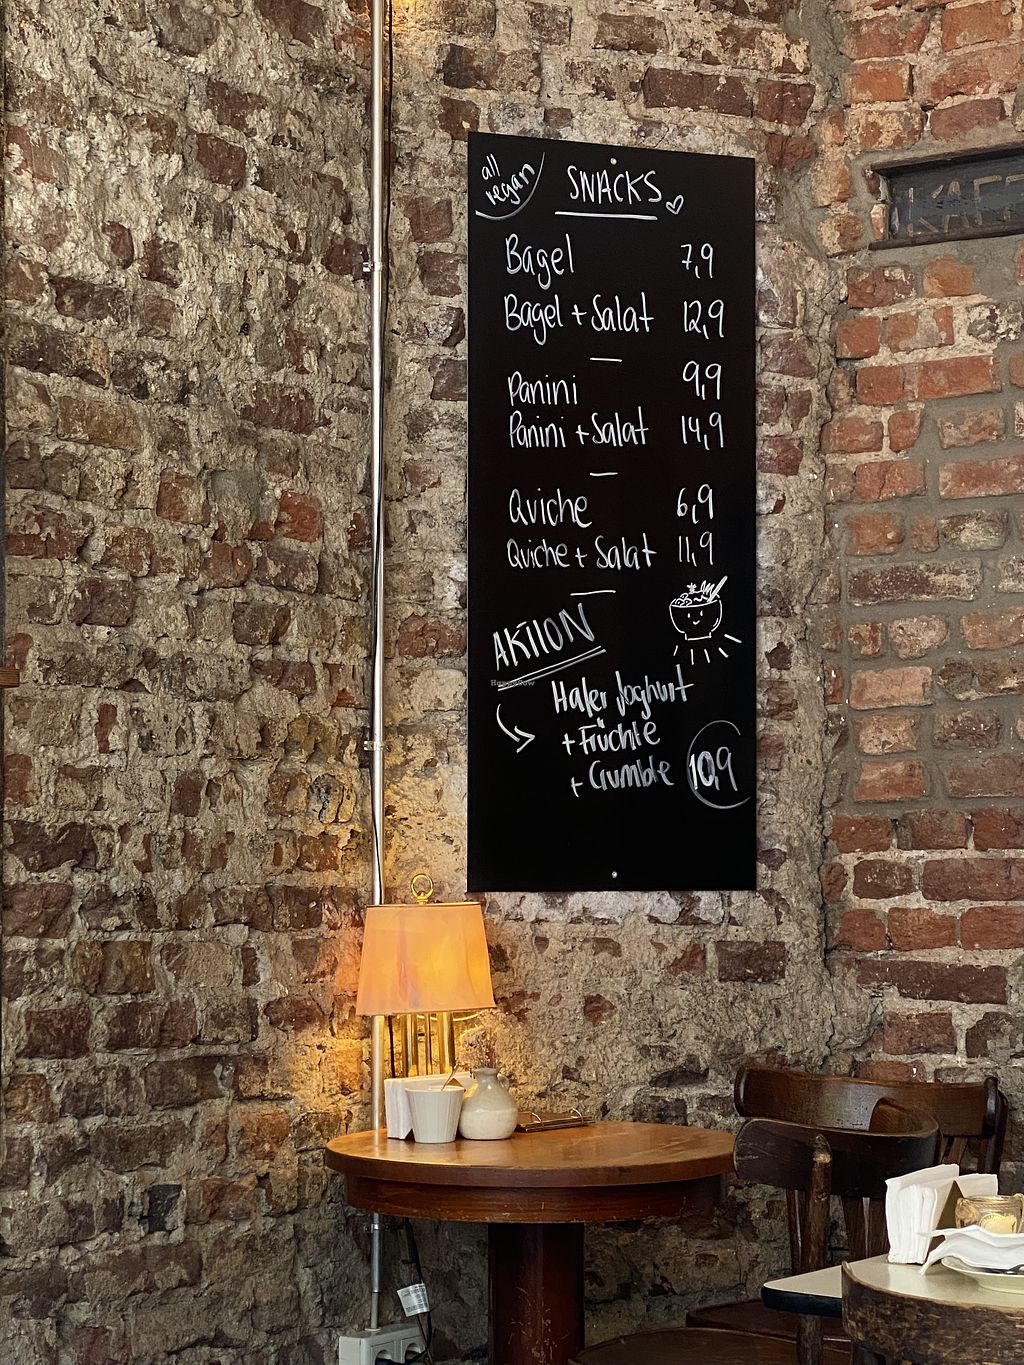 all vegan
SNACKS
Bagel 7,9
Bagel + Salat 12,9
Panini 9,9
Panini + Salat 14,9
Quiche 6,9
Quiche + Salat 11,9
AKTION
HappyCow
Hafer Joghurt
+ Früchte
+ Crumble 10,9